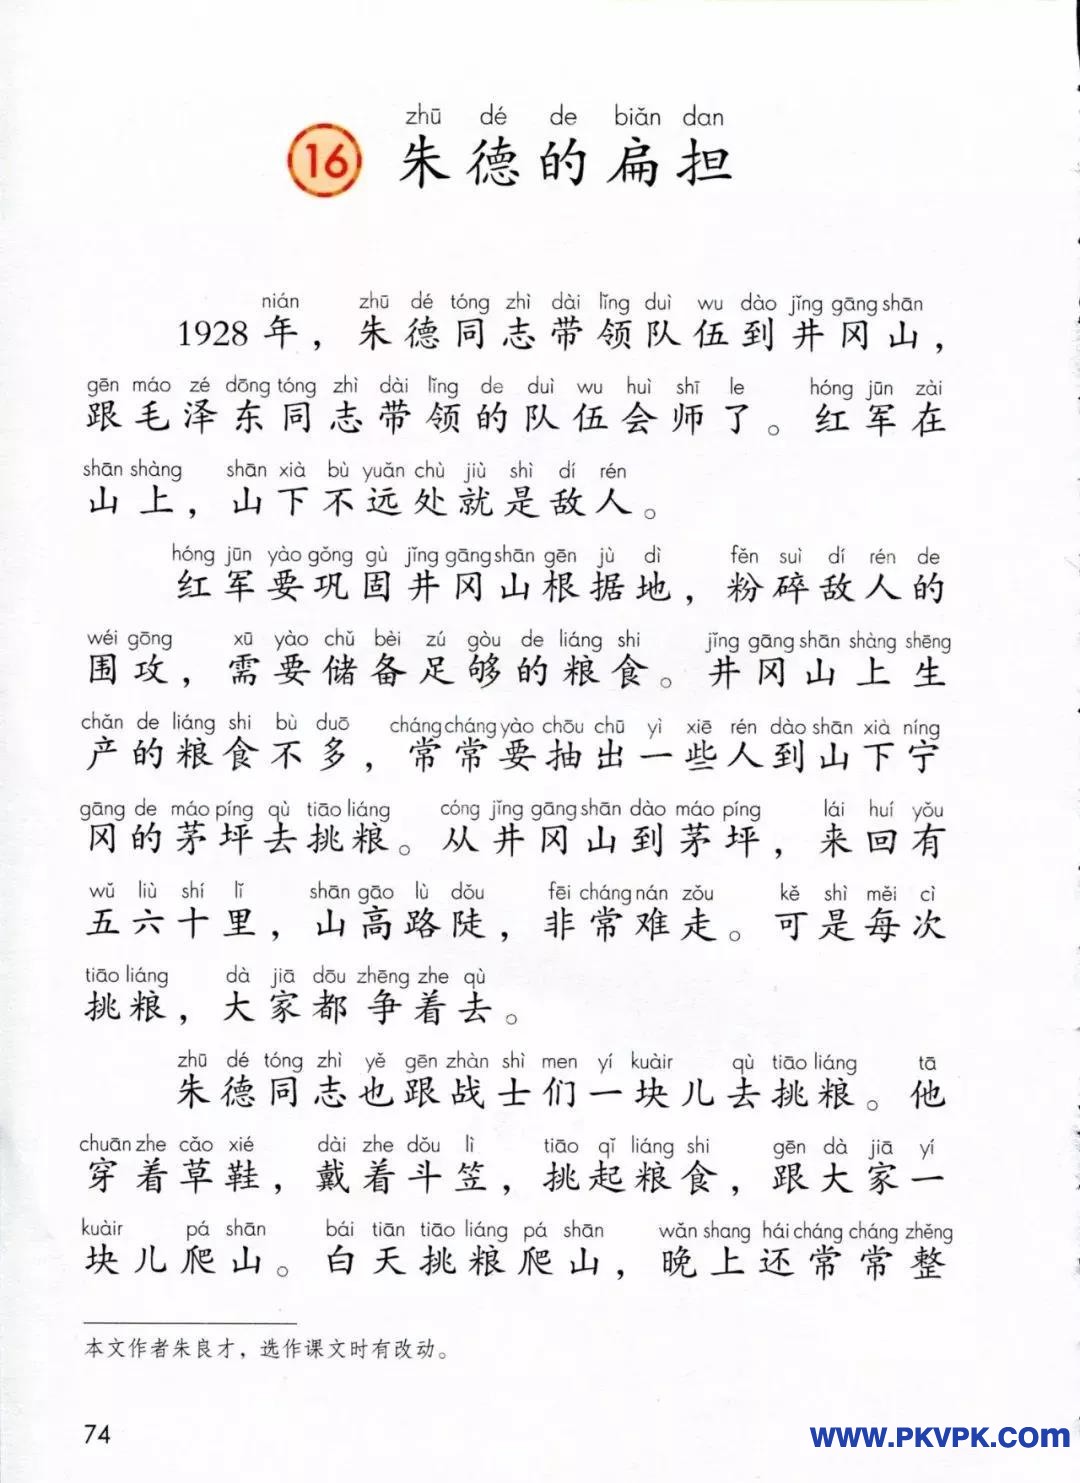 zhū dé de biǎn dan
16 朱德的扁担
nián zhū dé tóng zhì dài lǐng duì wu dào jǐng gāng shān
1928年，朱德同志带领队伍到井冈山，
gēn máo zé dōng tóng zhì dài lǐng de duì wu huì shī le hóng jūn zài
跟毛泽东同志带领的队伍会师了。红军在
shān shàng shān xià bù yuǎn chù jiù shì dí rén
山上，山下不远处就是敌人。
hóng jūn yào gǒng gù jǐng gāng shān gēn jù dì fěn suì dí rén de
红军要巩固井冈山根据地，粉碎敌人的
wéi gōng xū yào chǔ bèi zú gòu de liáng shi jǐng gāng shān shàng shēng
围攻，需要储备足够的粮食。井冈山上生
chǎn de liáng shi bù duō cháng cháng yào chōu chū yì xiē rén dào shān xià níng
产的粮食不多，常常要抽出一些人到山下宁
gāng de máo píng qù tiāo liáng cóng jǐng gāng shān dào máo píng lái huí yǒu
冈的茅坪去挑粮。从井冈山到茅坪，来回有
wǔ liù shí lǐ shān gāo lù dǒu fēi cháng nán zǒu kě shì měi cì
五六十里，山高路陡，非常难走。可是每次
tiāo liáng dà jiā dōu zhēng zhe qù
挑粮，大家都争着去。
zhū dé tóng zhì yě gēn zhàn shì men yí kuàir qù tiāo liáng tā
朱德同志也跟战士们一块儿去挑粮。他
chuān zhe cǎo xié dài zhe dǒu lì tiāo qǐ liáng shi gēn dà jiā yí
穿着草鞋，戴着斗笠，挑起粮食，跟大家一
kuàir pá shān bái tiān tiāo liáng pá shān wǎn shang hái cháng cháng zhěng
块儿爬山。白天挑粮爬山，晚上还常常整
本文作者朱良才，选作课文时有改动。
74
www.PKVPK.com